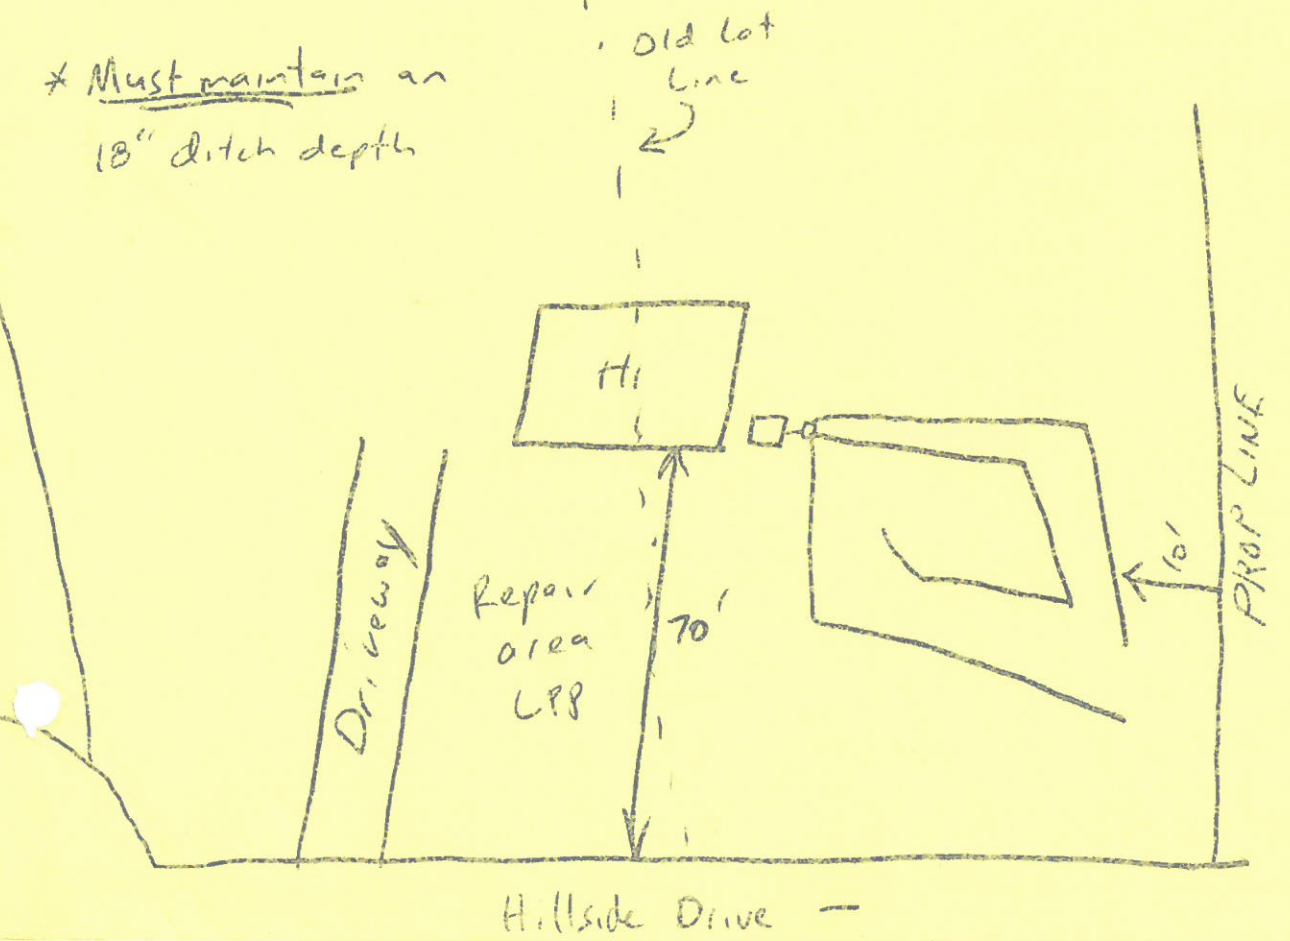 * Must maintain an
18" ditch depth
Old Lot
Line
H
Driveway
Repair
area
LPP
70'
10'
PROP LINE
Hillside Drive —